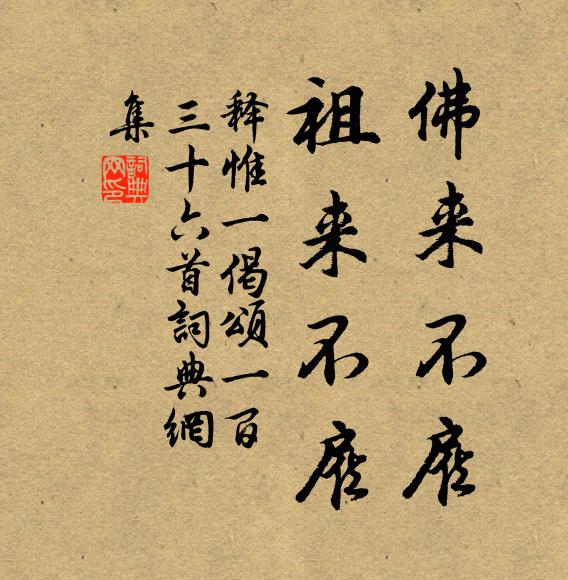 佛来不應
祖来不應
释惟一偈頌一百
三十六首詞典網
集
詞典
网印